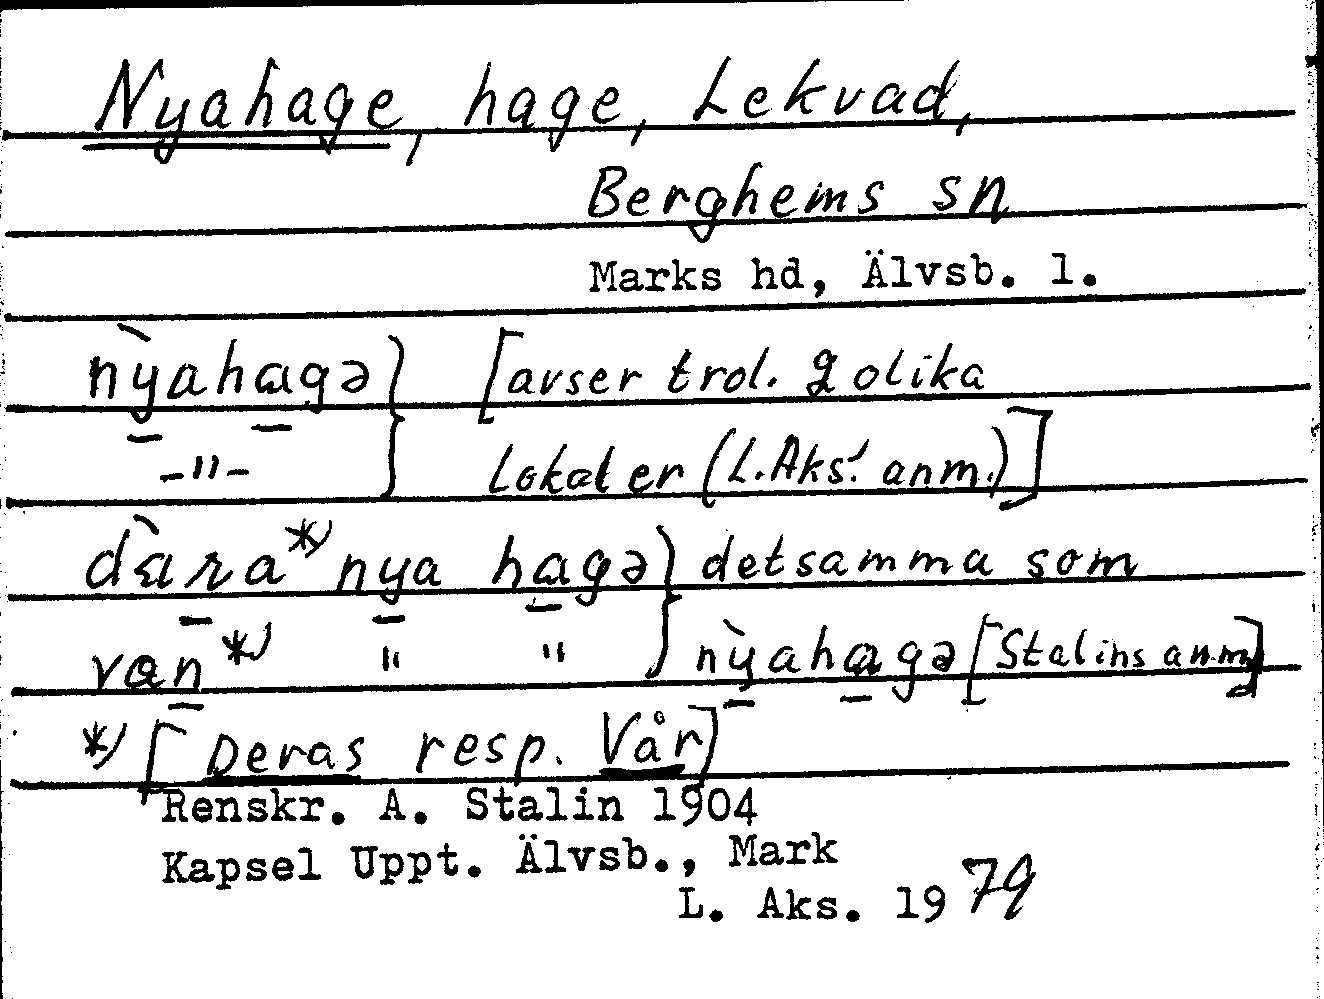 Nyahage, hage, Lekvad,
Berghems sn
Marks hd, Älvsb. l.
nỳahagə } [avser trol. 2 olika
-"- lokaler (L.Aks:' anm.)]
dàra*) nya hagə } detsamma som
van*) " " nỳahagə [Stalins anm.]
*) [Deras resp. Vår]
Renskr. A. Stalin 1904
Kapsel Uppt. Älvsb., Mark
L. Aks. 1979